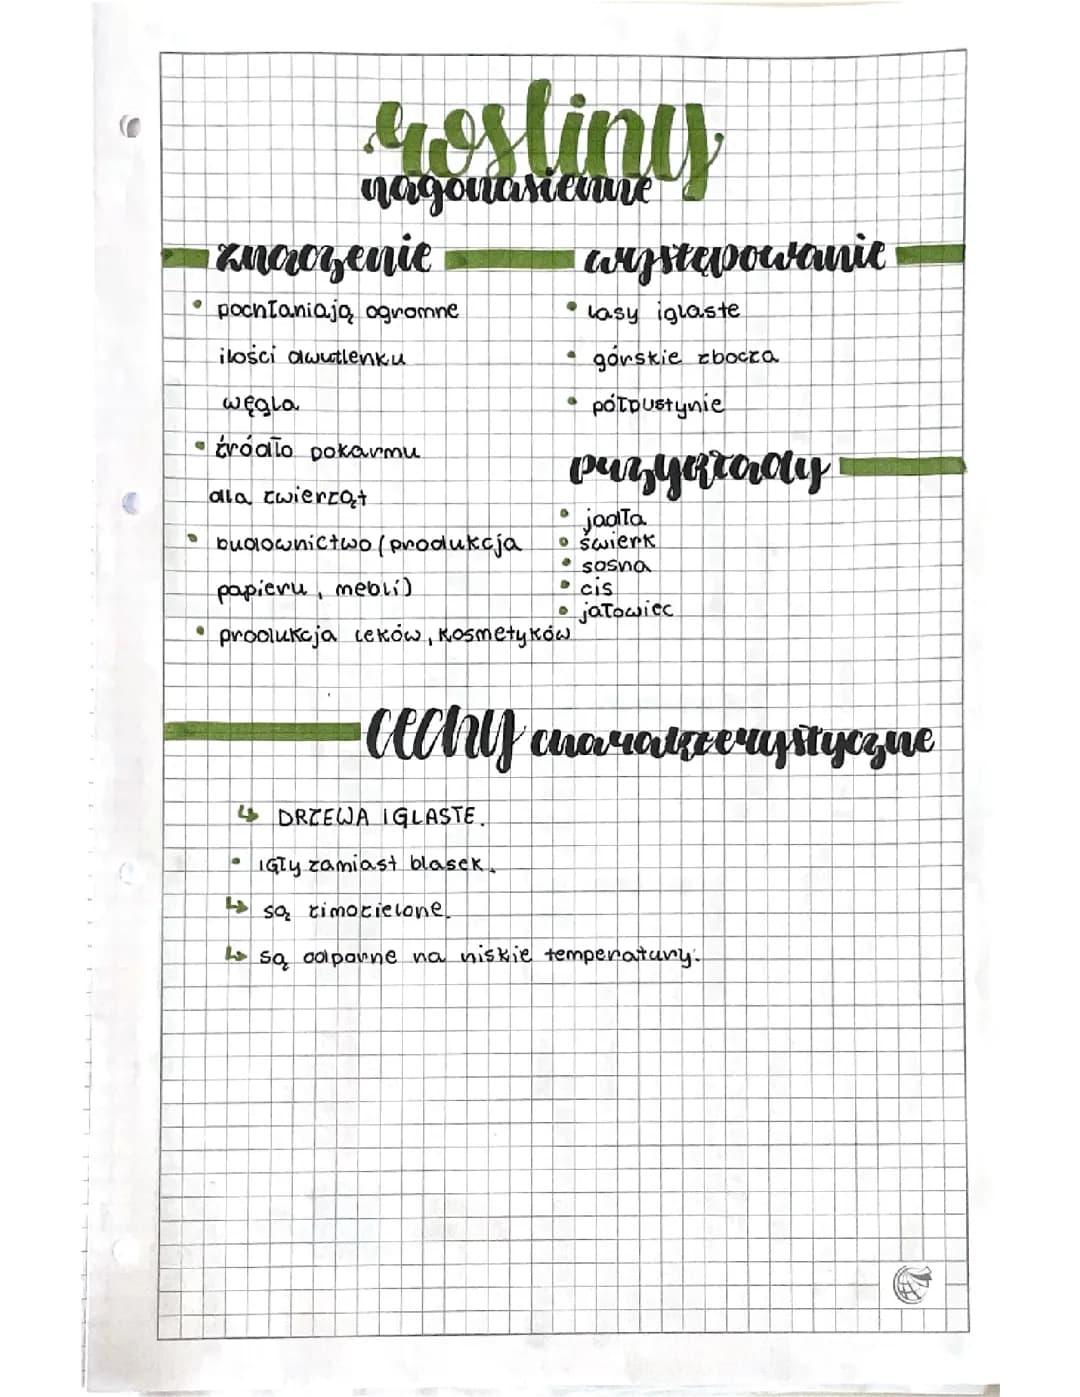 rośliny
nagonasienne
znaczenie
• pochłaniają ogromne
ilości dwutlenku
węgla
• źródło pokarmu
dla zwierząt
• budownictwo (produkcja
papieru, mebli)
• produkcja leków, kosmetyków
występowanie
• lasy iglaste
• górskie zbocza
• półpustynie
przykłady
• jodła
• świerk
• sosna
• cis
• jałowiec
cechy charakterystyczne
↳ DRZEWA IGLASTE.
• IGły zamiast blasek.
↳ są zimozielone.
↳ są odporne na niskie temperatury.